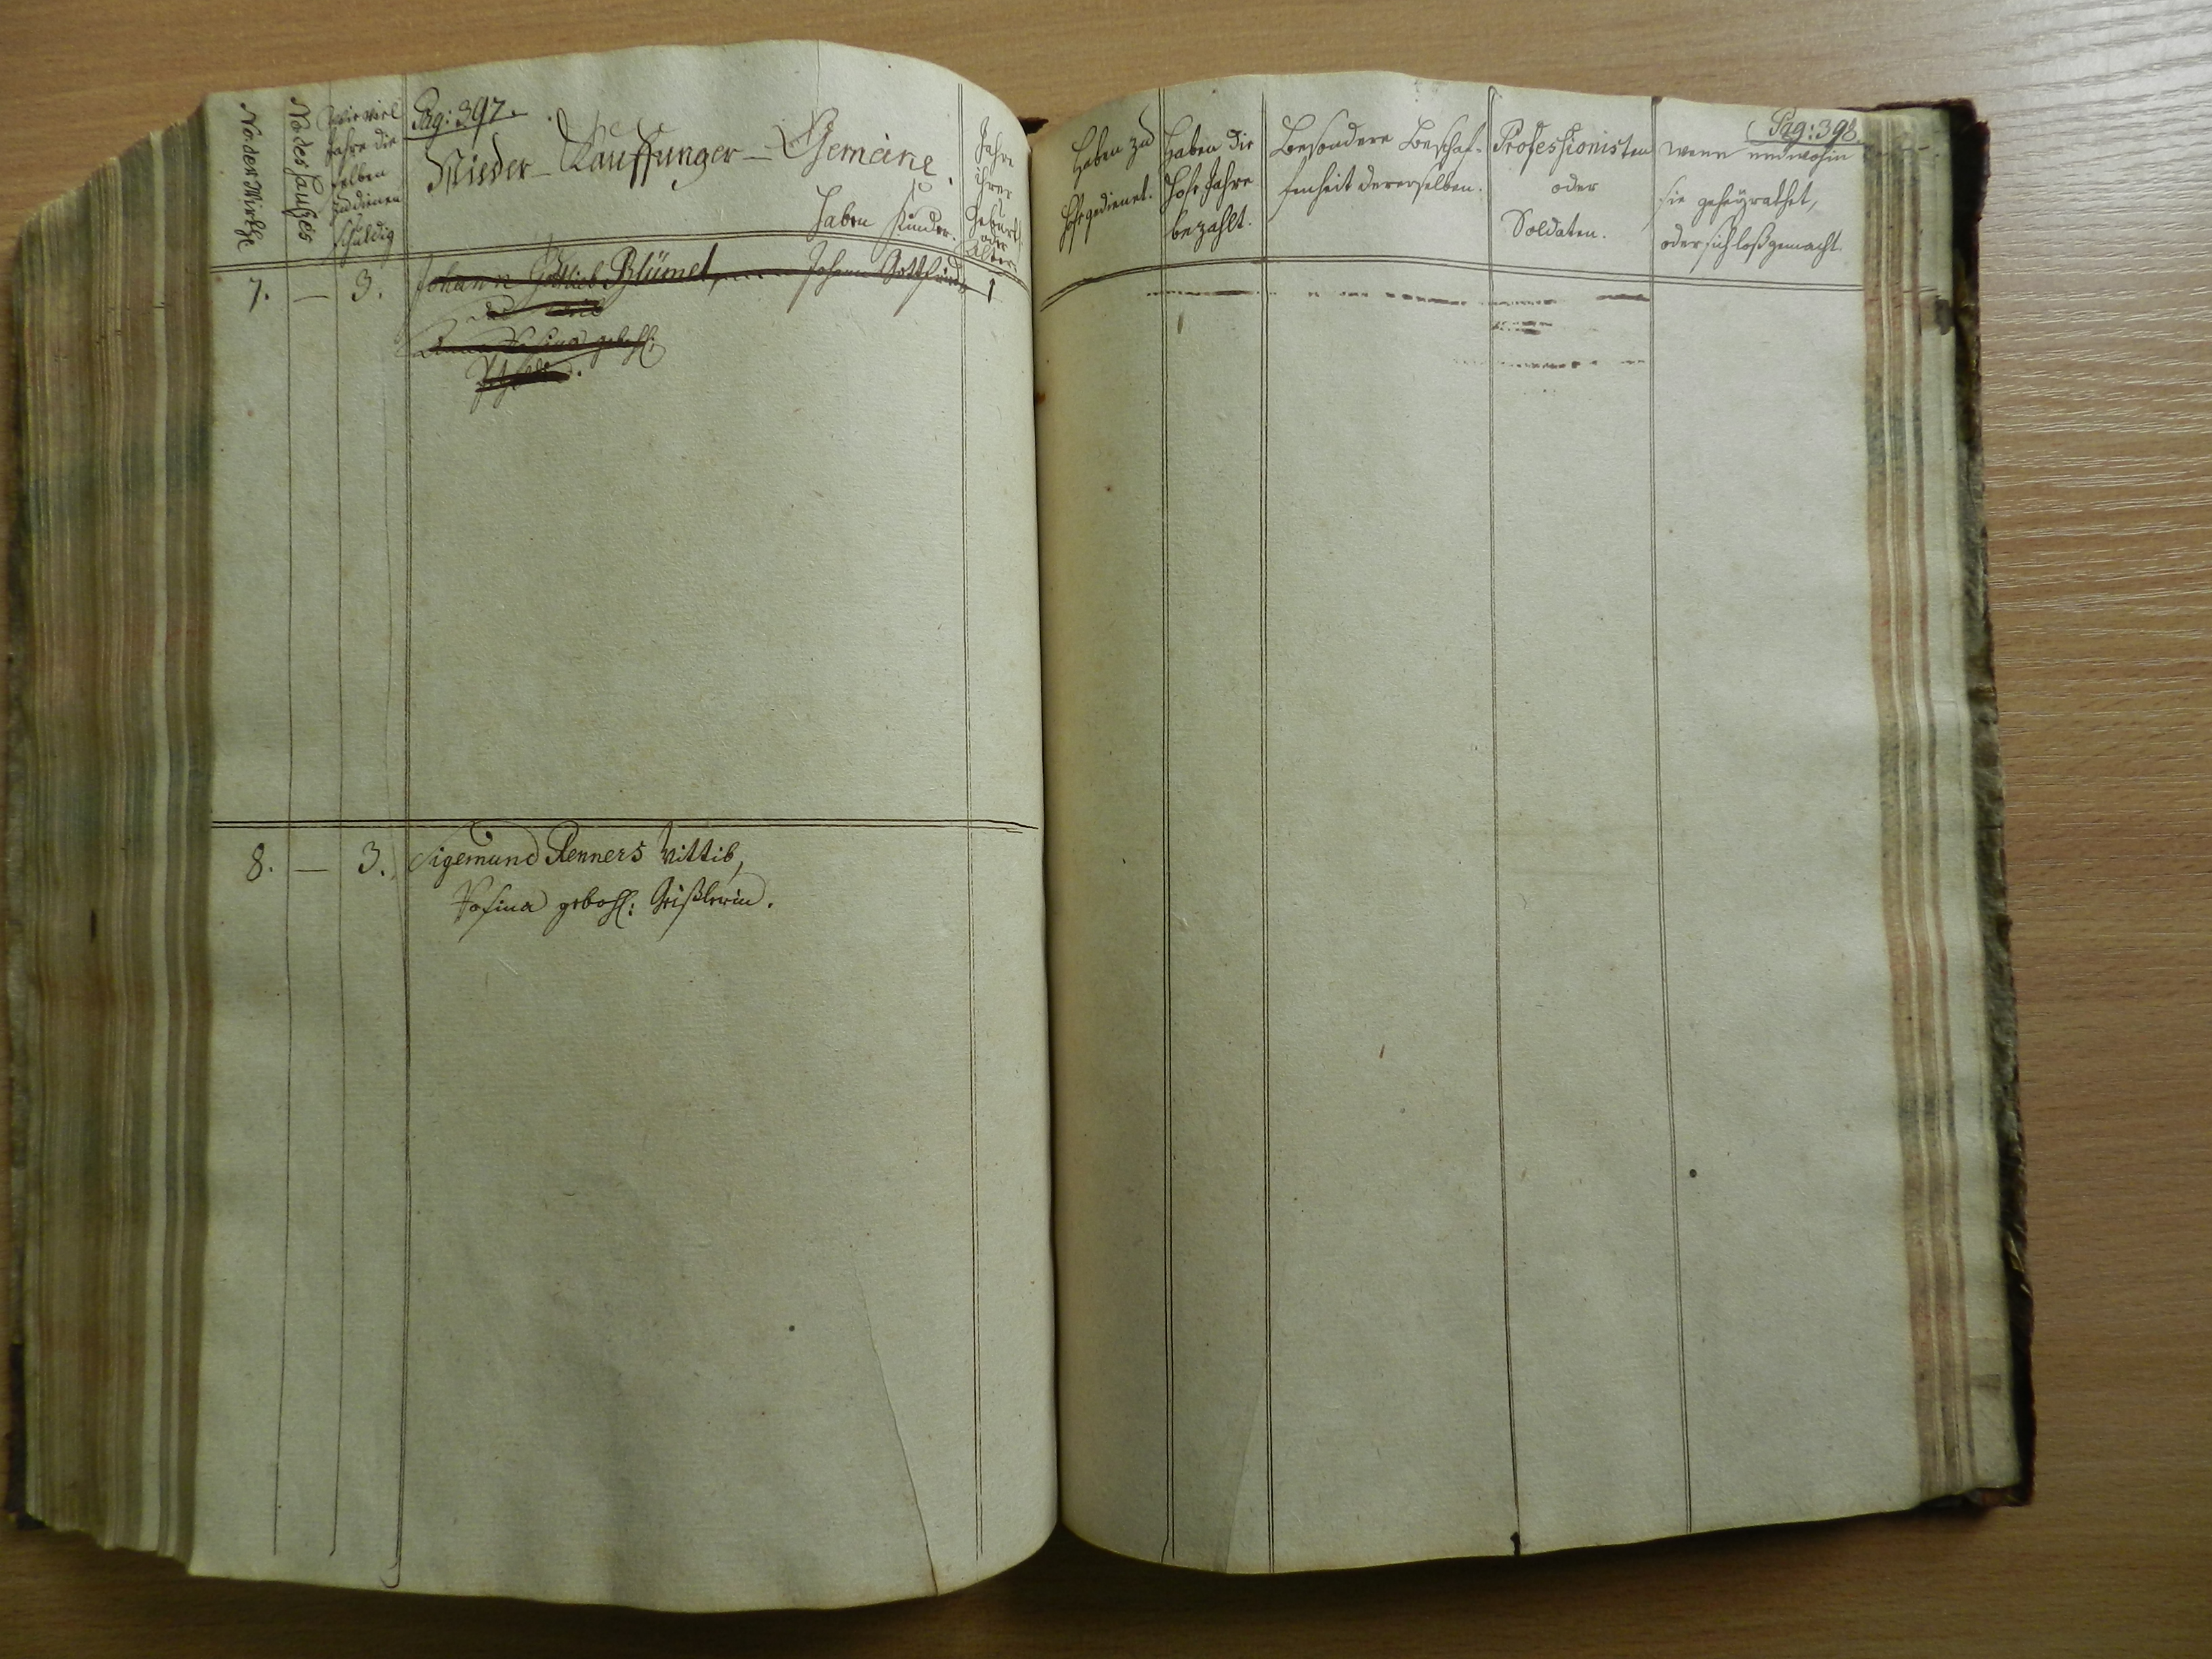 No der Wirthe
No des Haußes
Wie viel
Jahre die
selben
zu dienen
schuldig
Pag: 397.
Nieder-Kauffunger-Gemeine
haben Kinder.
Jahre
ihrer
Geburt
oder
Alter.
7. — 3. Johann Gottlieb Blümel, Johann Gottfried 1
Anna Rosina gebohl:
8. — 3. Sigemund Renners Wittib,
Rosina gebohl: Geißlerin.
Pag: 398.
Haben zu
Hofe gedienet.
Haben die
Hofe Jahre
bezahlt.
Besondere Beschaf-
fenheit dererselben.
Professionisten
oder
Soldaten.
Wenn und wohin
sie geheyrathet,
oder sich loßgemacht.